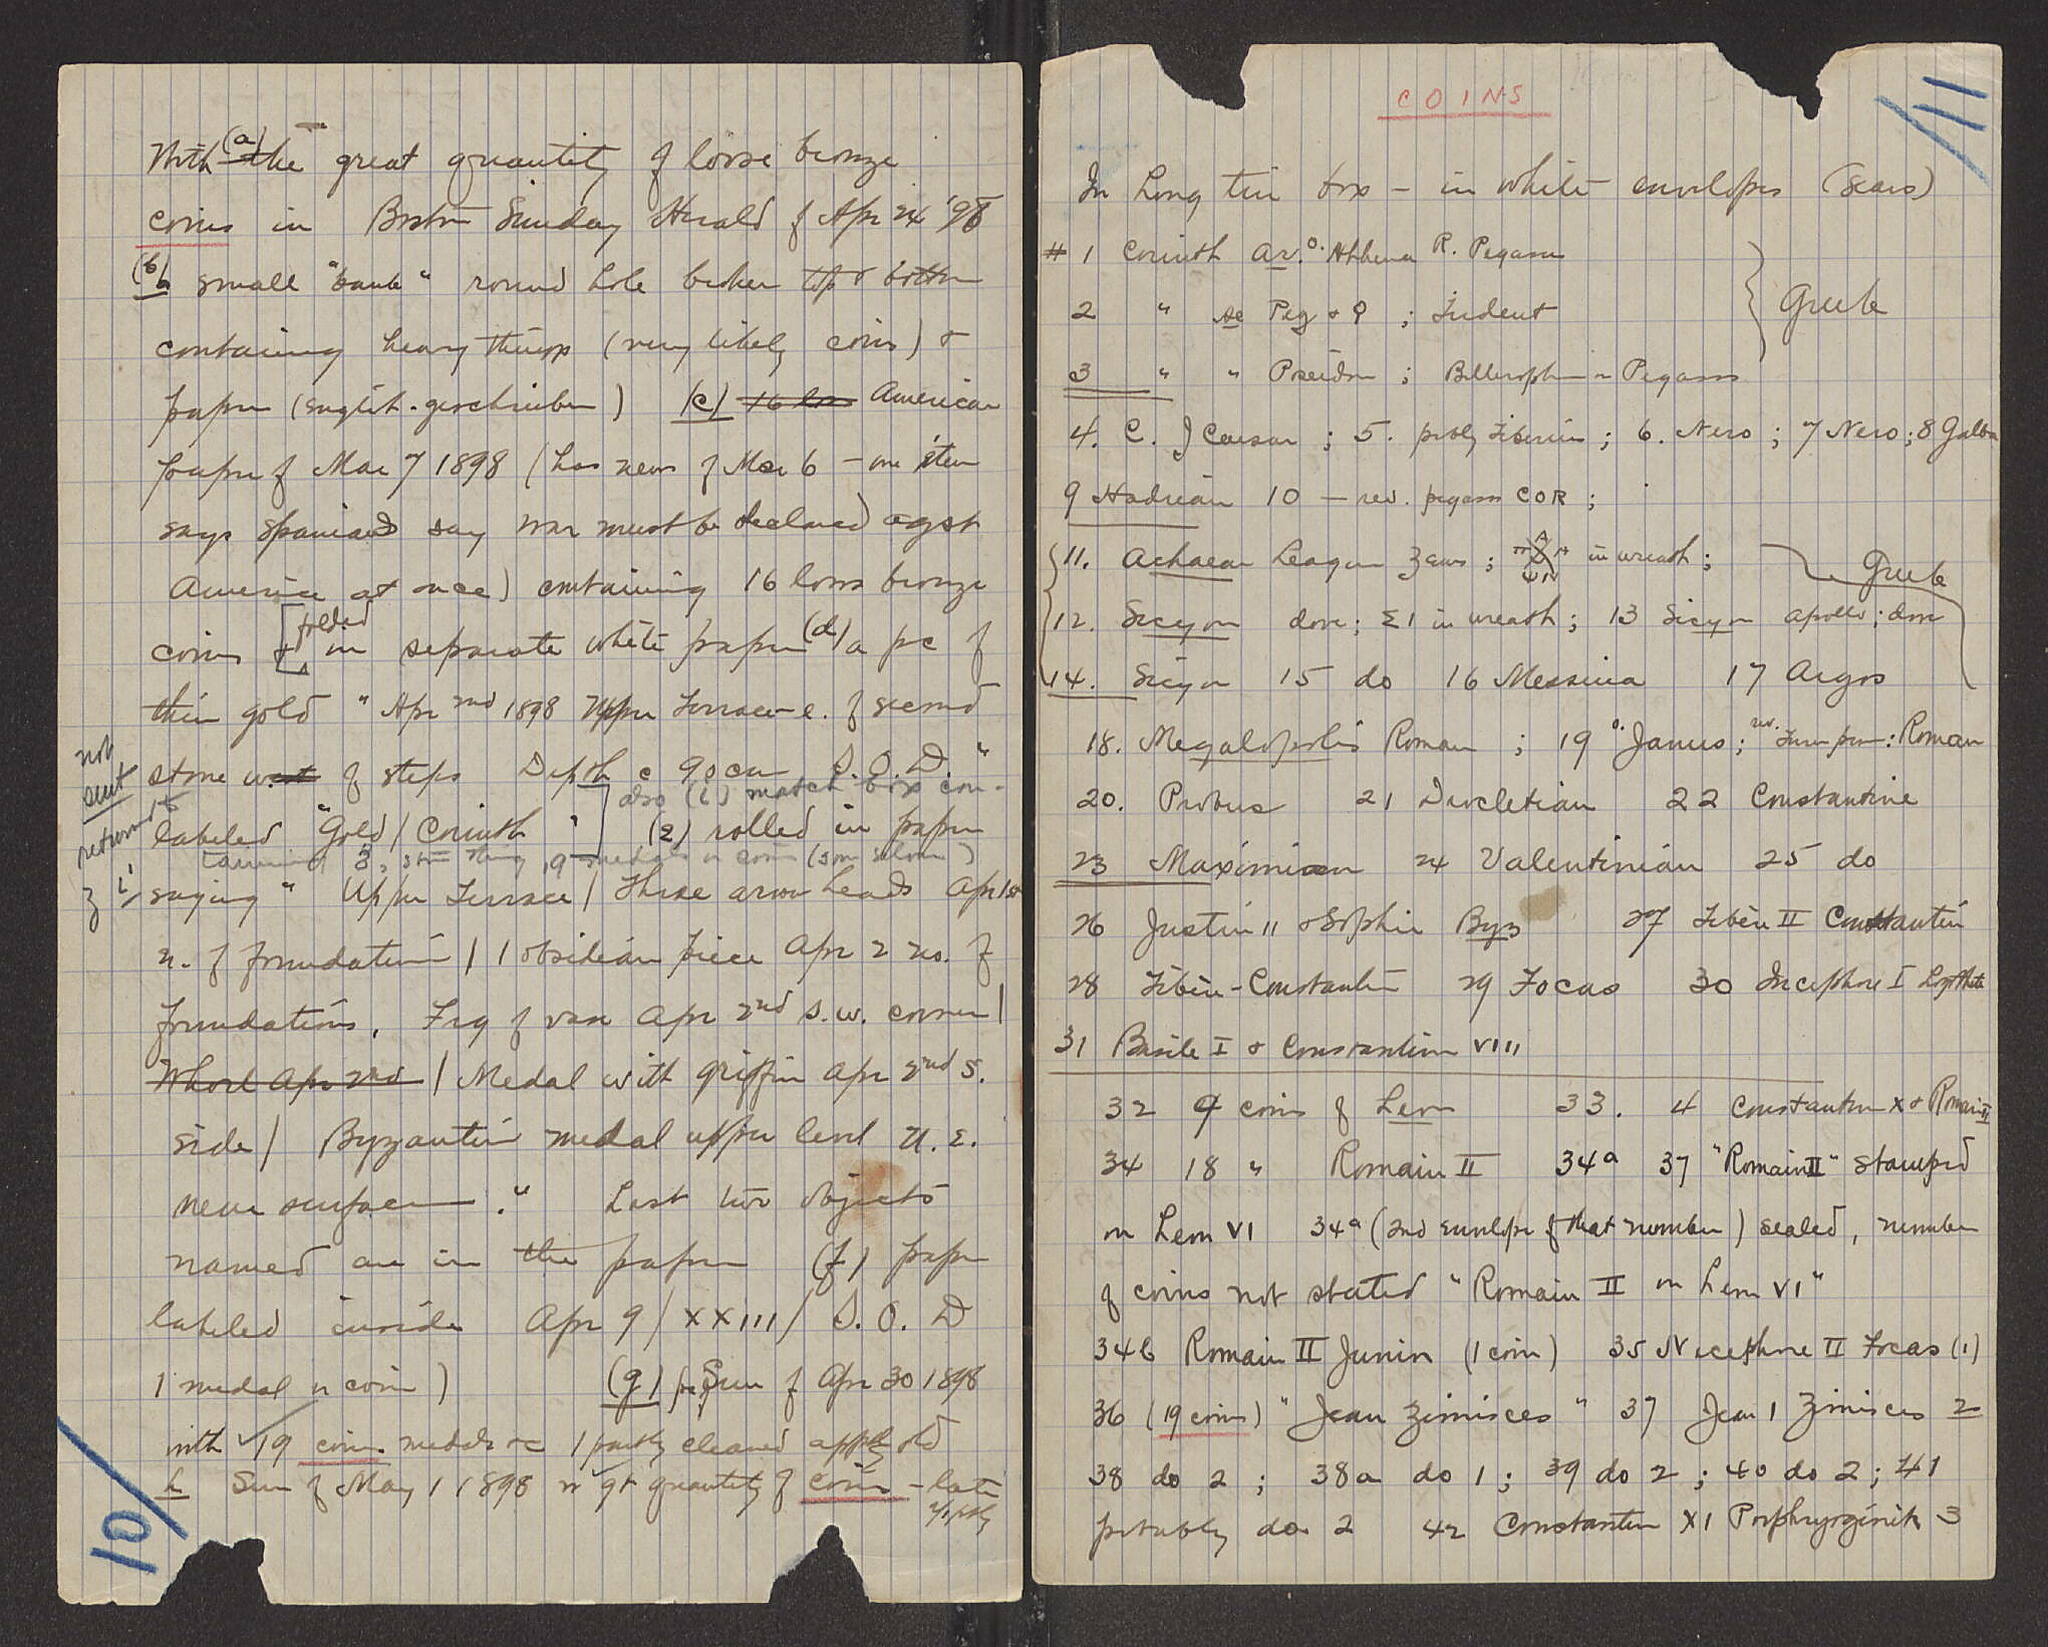 With (a) the great quantity of loose bronze
coins in Boston Sunday Herald of Apr 24 '98
(b) small "bank" round hole broken top & bottom
containing heavy things (very likely coins) &
paper (English-geschrieben) (c) 16 loose American
paper of Mar 7 1898 (has news of Mar 6 – one item
says Spaniard say war must be declared agst
America at once) containing 16 loose bronze
coins & [folded in separate white paper (d) a pc of
thin gold "Apr 2nd 1898 Upper Terrace e. of second
not sent
stone west of steps Depth c 90 cm S.O.D."
also (1) match box con-
returned to
labeled "Gold / Corinth" ] (2) rolled in paper
3, 19 medals or coins (some silver)
saying "Upper Terrace / Three arrow heads Apr 1st
n. of foundation / 1 obsidian piece Apr 2 no. of
foundations, Frg of vase Apr 2nd s.w. corner /
Whorl Apr 2nd / Medal with griffin Apr 2nd s.
side / Byzantin medal upper level N.E.
near surface." Last two objects
named are in the paper (f) paper
labeled inside Apr 9 / XXIII / S.O.D
1 medal or coin) (g) Sun of Apr 30 1898
with 19 coins medals or 1 partly cleaned apptly old
h Sun of May 1 1898 w gt quantity of coins – late
apptly
10/
COINS
11
In Long tin box – in white envelopes (Sears)
# 1 Corinth Ar. O. Athena R. Pegasus
2 " ae Peg & Ϙ ; Trident
Greek
3 " " Poseidon ; Bellerophon on Pegasus
4. C. J Caesar ; 5. probly Tiberius ; 6. Nero ; 7 Nero ; 8 Galba
9 Hadrian 10 – rev. pegasus COR ;
11. Achaean League Zeus ; in wreath ;
Greek
12. Sicyon dove ; ΣI in wreath ; 13 Sicyon Apollo ; dove
14. Sicyon 15 do 16 Messina 17 Argos
18. Megalopolis Roman ; 19 o. Janus ; rev. : Roman
20. Probus 21 Diocletian 22 Constantine
23 Maximian 24 Valentinian 25 do
26 Justin II & Sophie Byz 27 Tibère II Constantin
28 Tibère-Constantin 29 Focas 30 Nicephore I Logothete
31 Basile I & Constantin VIII
32 9 coins of Leon 33. 4 Constantin X & Romain II
34 18 " Romain II 34a 37 "Romain II" stamped
on Leon VI 34a (2nd envelope of that number) sealed, number
of coins not stated "Romain II on Leon VI"
34b Romain II Junior (1 coin) 35 Nicephore II Focas (1)
36 (19 coins) "Jean Zimisces" 37 Jean I Zimisces 2
38 do 2 ; 38a do 1 ; 39 do 2 ; 40 do 2 ; 41
probably do 2 42 Constantin XI Porphyrogénite 3